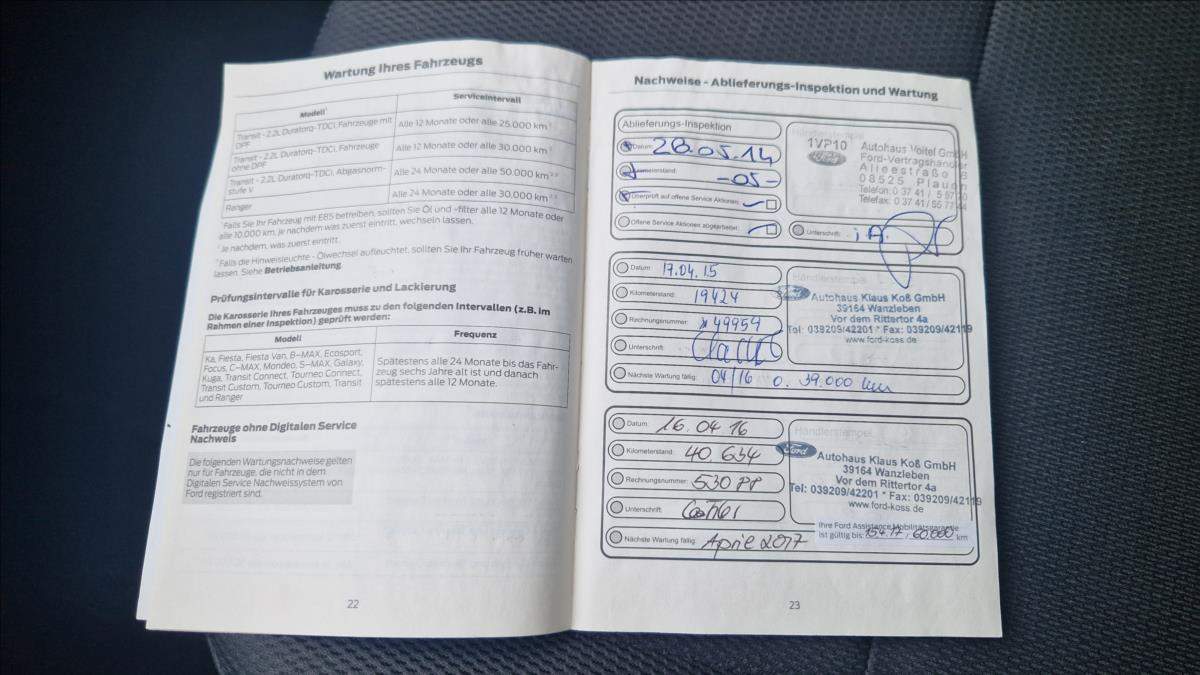 Wartung Ihres Fahrzeugs
Modell¹ Serviceintervall
Transit - 2.2L Duratorq-TDCi, Fahrzeuge mit Alle 12 Monate oder alle 25.000 km
DPF
Transit - 2.2L Duratorq-TDCi, Fahrzeuge Alle 12 Monate oder alle 30.000 km
ohne DPF
Transit - 2.2L Duratorq-TDCi, Abgasnorm- Alle 24 Monate oder alle 50.000 km
stufe V
Ranger Alle 24 Monate oder alle 30.000 km
Falls Sie Ihr Fahrzeug mit E85 betreiben, sollten Sie Öl und -filter alle 12 Monate oder
alle 10.000 km, je nachdem was zuerst eintritt, wechseln lassen.
Je nachdem, was zuerst eintritt.
Falls die Hinweisleuchte - Ölwechsel aufleuchtet, sollten Sie Ihr Fahrzeug früher warten
lassen. Siehe Betriebsanleitung.
Prüfungsintervalle für Karosserie und Lackierung
Die Karosserie Ihres Fahrzeuges muss zu den folgenden Intervallen (z.B. im
Rahmen einer Inspektion) geprüft werden:
Modell Frequenz
Ka, Fiesta, Fiesta Van, B-MAX, Ecosport,
Focus, C-MAX, Mondeo, S-MAX, Galaxy,
Kuga, Transit Connect, Tourneo Connect,
Transit Custom, Tourneo Custom, Transit
und Ranger
Spätestens alle 24 Monate bis das Fahr-
zeug sechs Jahre alt ist und danach
spätestens alle 12 Monate.
Fahrzeuge ohne Digitalen Service
Nachweis
Die folgenden Wartungsnachweise gelten
nur für Fahrzeuge, die nicht in dem
Digitalen Service Nachweissystem von
Ford registriert sind.
22
Nachweise - Ablieferungs-Inspektion und Wartung
Ablieferungs-Inspektion
Datum: 28.05.14
-05-
Überprüft auf offene Service Aktionen:
Offene Service Aktionen abgearbeitet:
Händlerstempel
1VP10
Ford
Autohaus Voitel GmbH
Ford-Vertragshändler
08525 Plauen
Unterschrift: i.A.
Datum: 17.04.15
Kilometerstand: 19424
Rechnungsnummer: 49954
Unterschrift:
Nächste Wartung fällig: 04/16 o. 39.000 km
Händlerstempel
Ford
Autohaus Klaus Koß GmbH
39164 Wanzleben
Vor dem Rittertor 4a
Tel: 039209/42201 * Fax: 039209/42119
www.ford-koss.de
Datum: 16.04.16
Kilometerstand: 40 634
Rechnungsnummer:
Unterschrift:
Nächste Wartung fällig: April 2017
Händlerstempel
Ford
Autohaus Klaus Koß GmbH
39164 Wanzleben
Vor dem Rittertor 4a
Tel: 039209/42201 * Fax: 039209/42119
www.ford-koss.de
Ihre Ford Assistance Mobilitätsgarantie
ist gültig bis: 15.4.17, 60.000 km
23